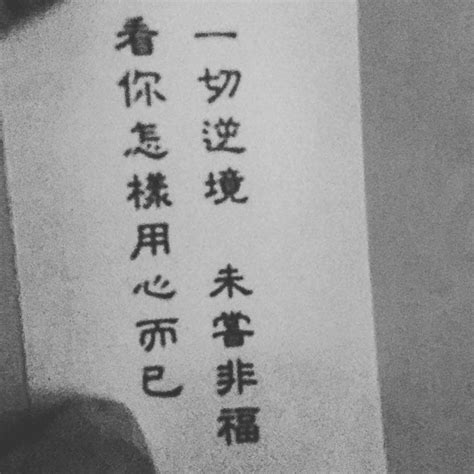 一切逆境 未嘗非福
看你怎樣用心而已